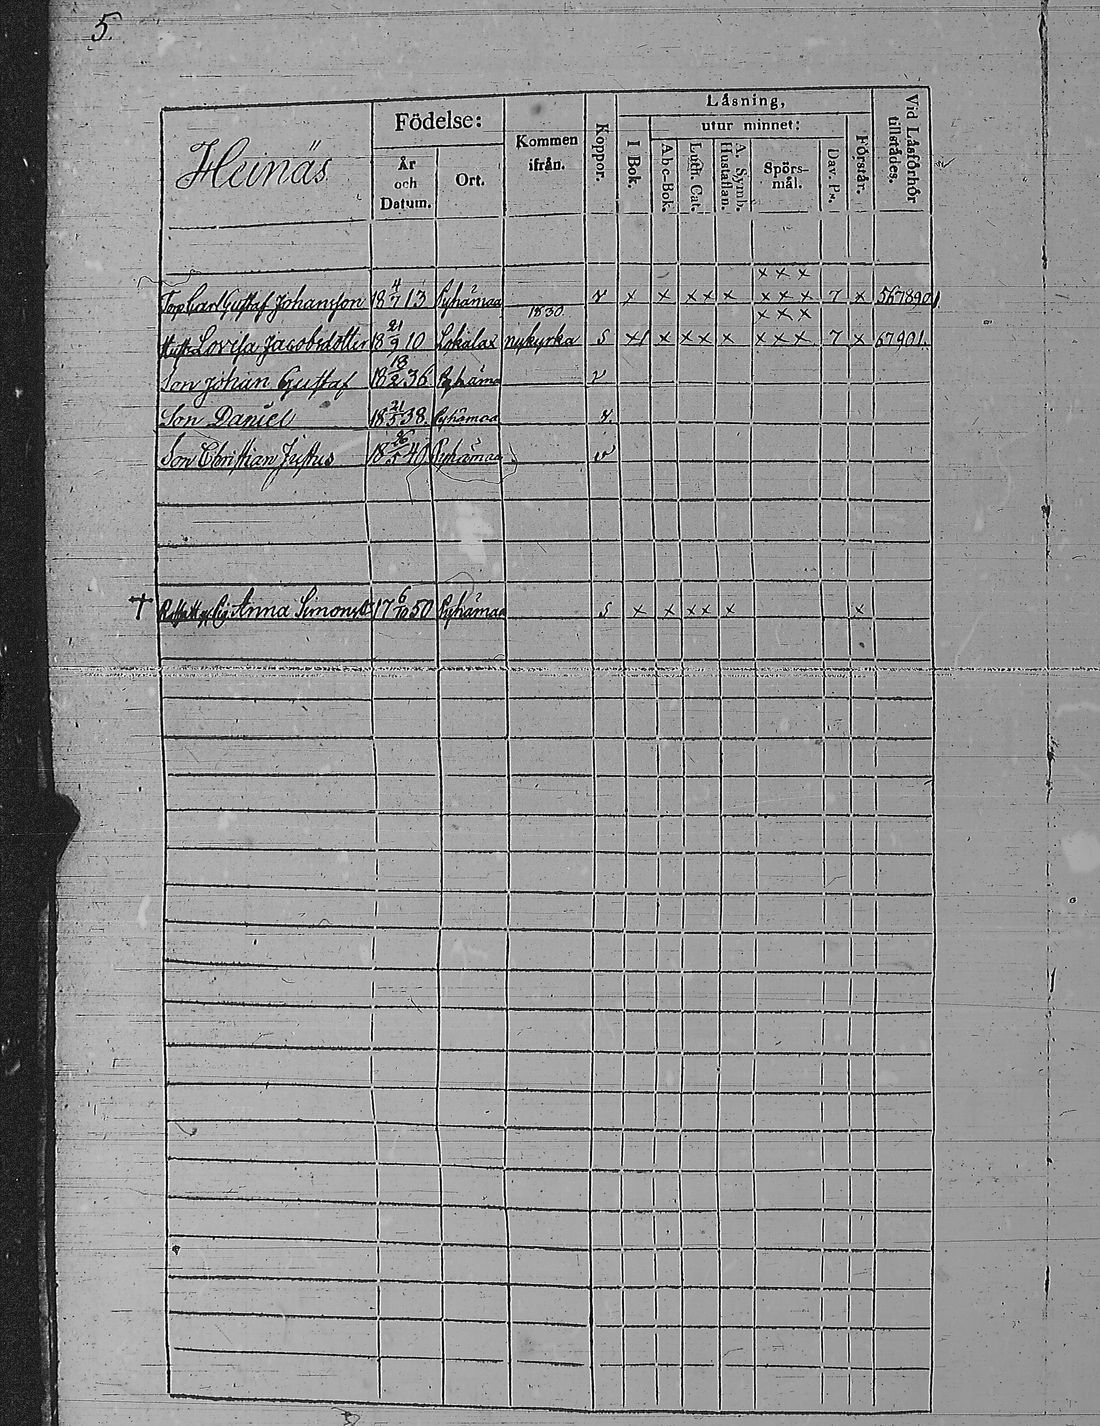 5
Heinäs
Födelse:
År
och
Datum.
Ort.
Kommen
ifrån.
Koppor.
Låsning,
I Bok.
utur minnet:
A b c-Bok.
Luth. Cat.
A. Symb.
Hustaflan.
Spörs-
mål.
Dav. Ps.
Förstår.
Vid Låsförhör
tillstådes.
x x x
Torp Carl Gustaf Johansson 18 4/7 13 Pyhämaa v x x xx x xxx 7 x 5678901
1830. x x x
Hust. Lovisa Jacobsdotter 18 21/9 10 Lokalax nykyrka s x x xx x xxx 7 x 67901.
Son Johan Gustaf 18 18/2 36 Pyhämaa v
Son Daniel 18 21/5 38. Pyhämaa v.
Son Christian Justus 18 26/5 41 Pyhämaa v
† Anna Simonsd:r 17 6/10 50 Pyhämaa s x x xx x x